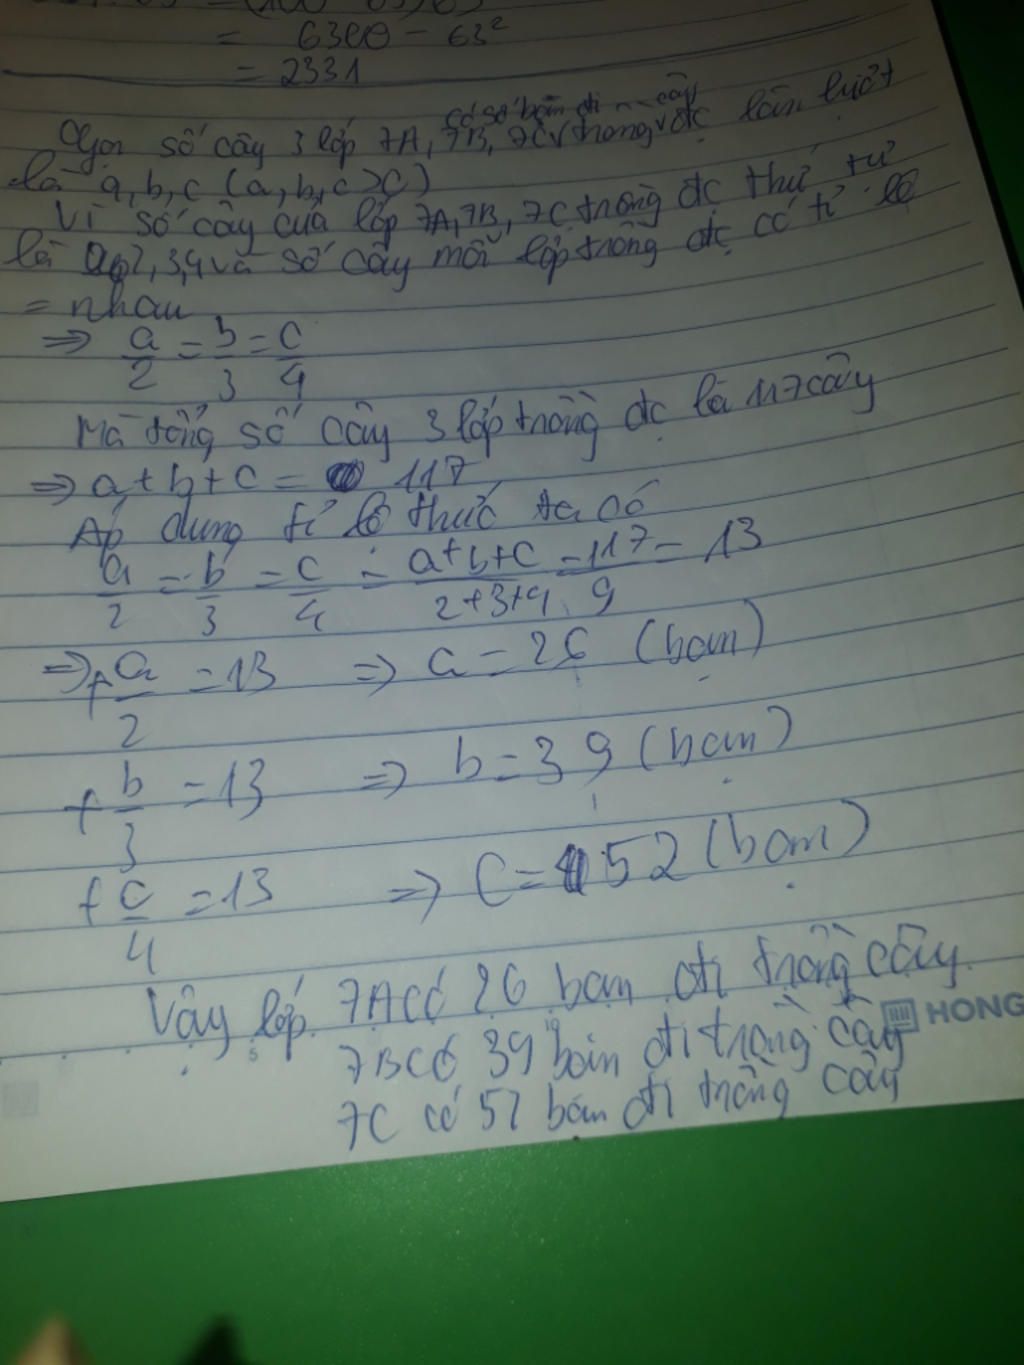 = 6300 - 63²
= 2331
có số bạn đi cây
Gọi số cây 3 lớp 7A, 7B, 7C trồng đc lần lượt
là a, b, c (a, b, c > C)
Vì số cây của lớp 7A, 7B, 7C trồng đc thứ tự
là 2, 3, 4 và số cây mỗi lớp trồng đc có tỉ lệ
= nhau
⇒ a/2 = b/3 = c/4
Mà tổng số cây 3 lớp trồng đc là 117 cây
⇒ a + b + c = 117
Áp dụng tỉ lệ thức ta có
a/2 = b/3 = c/4 = (a+b+c)/(2+3+4) = 117/9 = 13
⇒ + a/2 = 13 ⇒ a = 26 (bạn)
+ b/3 = 13 ⇒ b = 39 (bạn)
+ c/4 = 13 ⇒ C = 52 (bạn)
Vậy lớp 7A có 26 bạn đi trồng cây
7B có 39 bạn đi trồng cây
7C có 52 bạn đi trồng cây
HONG